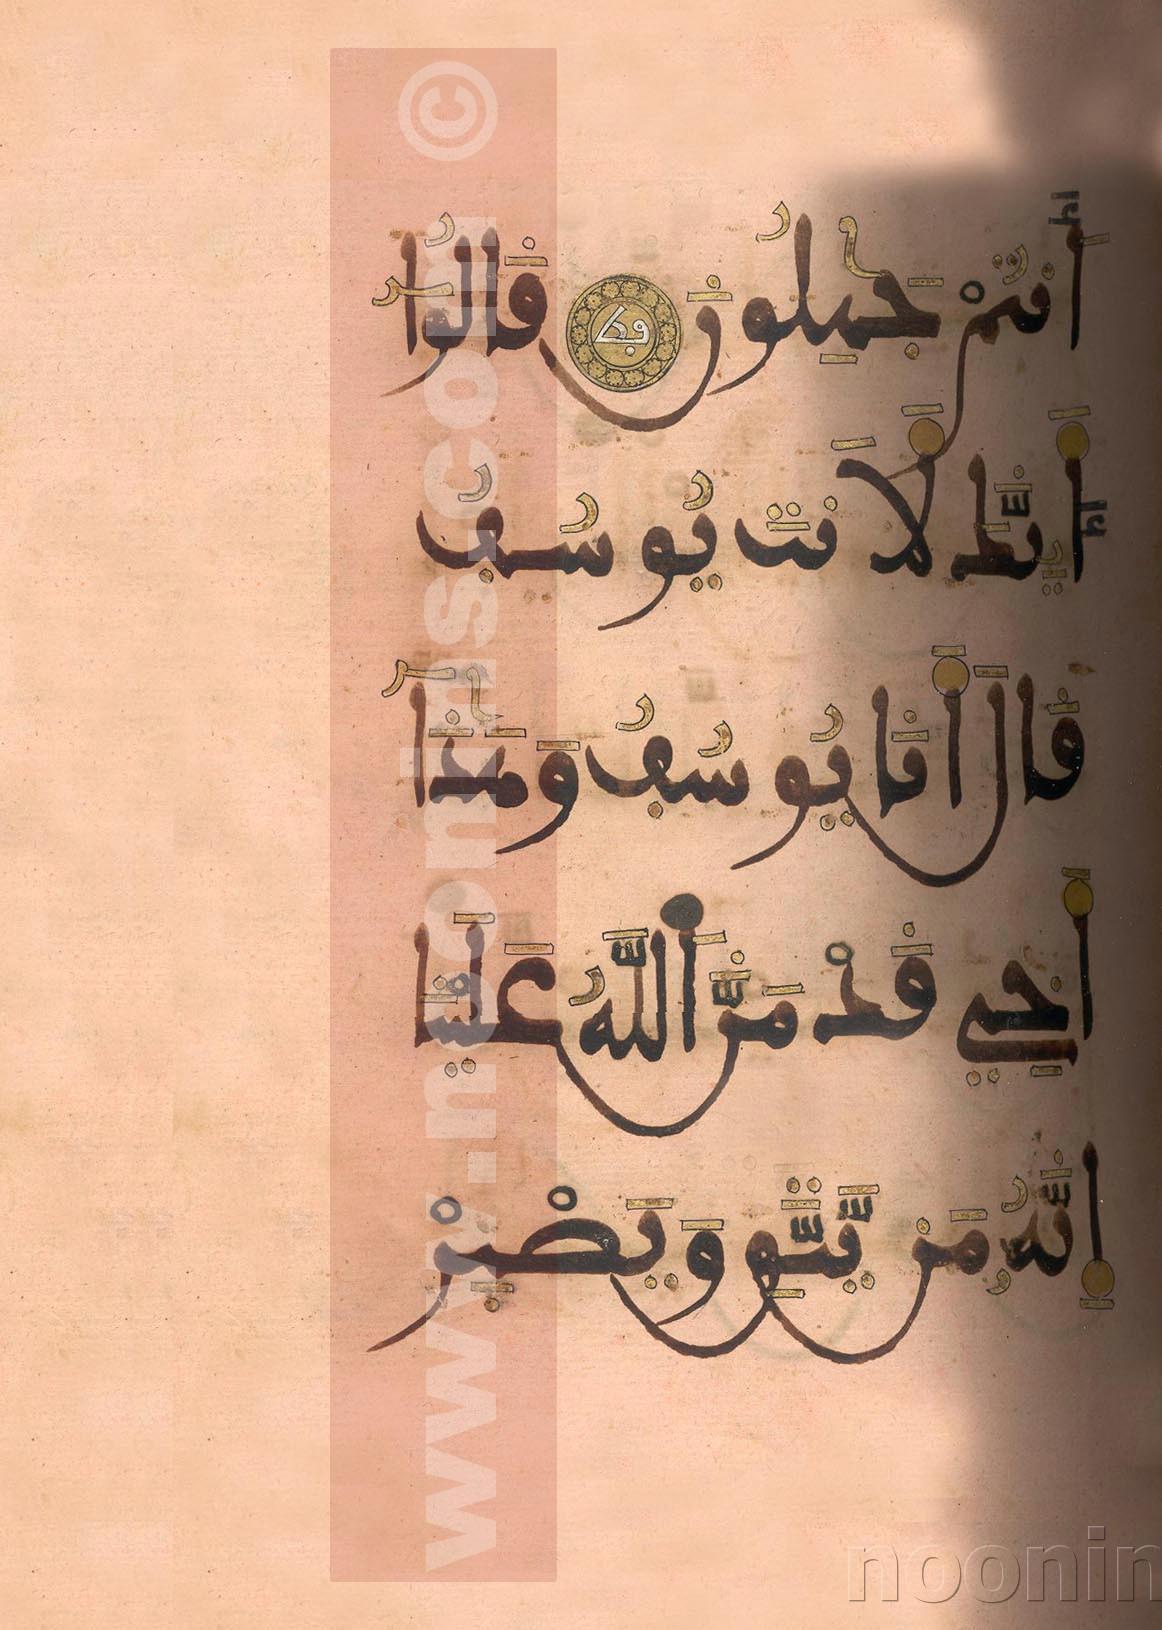 أَنتُمْ جَٰهِلُونَ قَالُوٓا۟
أَىِٕنَّكَ لَأَنتَ يُوسُفُ
قَالَ أَنَا يُوسُفُ وَهَٰذَآ
أَخِى قَدْ مَنَّ ٱللَّهُ عَلَيْنَا
إِنَّهُۥ مَن يَتَّقِ وَيَصْبِرْ
www.noonins.com ©
noonin